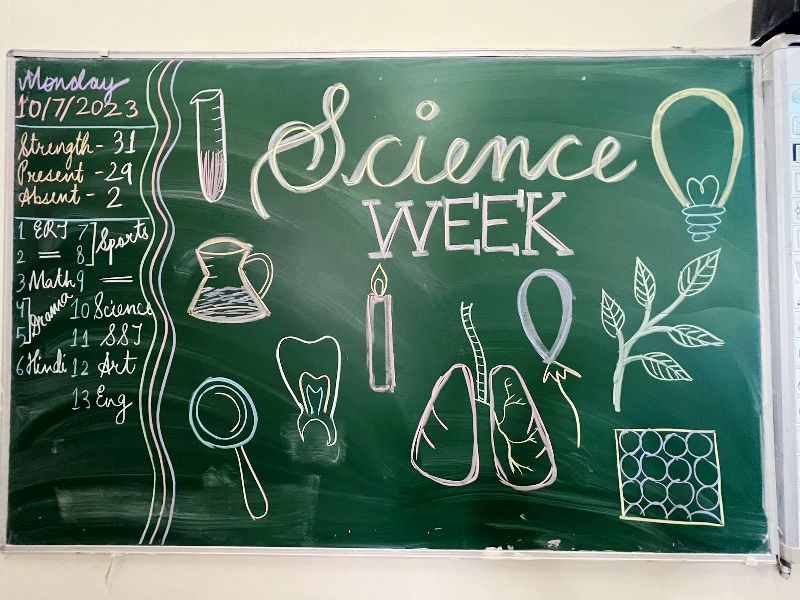 Monday
10/7/2023
Strength - 31
Present - 29
Absent - 2
1 ERT
2 =
3 Math
4 5 Drama
6 Hindi
7 8 Sports
9 =
10 Science
11 SST
12 Art
13 Eng
Science
WEEK